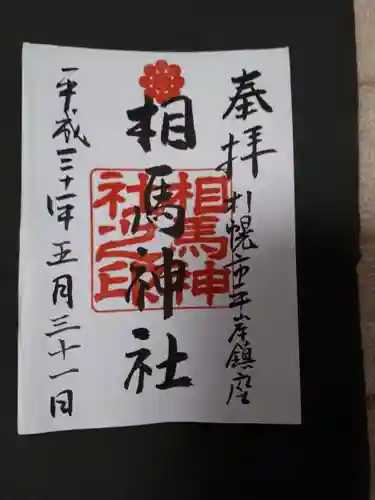 奉拝
札幌市平岸鎮座
相馬神社
相馬神社之印
平成三十一年五月三十一日